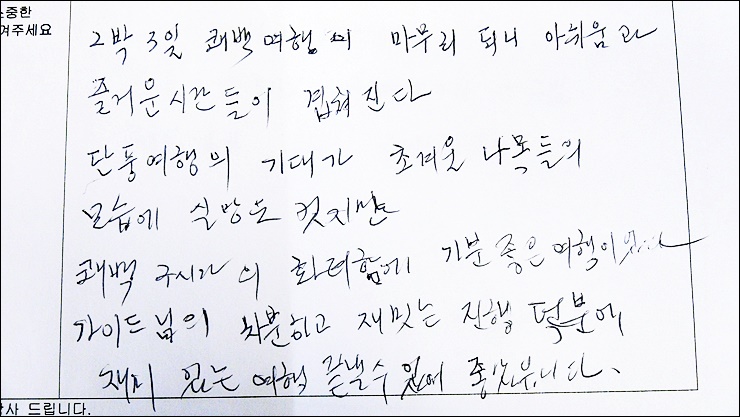 소중한
겨주세요
2박 3일 퀘백여행이 마무리 되니 아쉬움과
즐거운시간들이 겹쳐진다
단풍여행의 기대가 초겨울 나목들의
모습에 실망은 컷지만
퀘백 구시가의 화려함에 기분좋은여행이었다
가이드님의 차분하고 재밋는 진행 덕분에
재미 있는 여행 끝낼수 있에 좋았읍니다.
감사 드립니다.